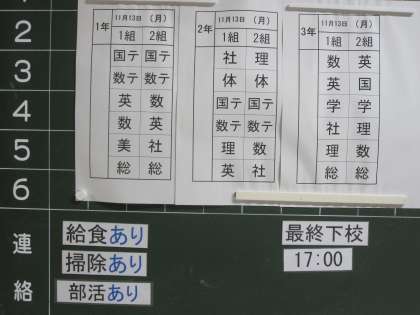 2
3
4
5
6
1年 11月13日（月）
1組 2組
国テ 国テ
数テ 数テ
英 数
数 英
美 社
総 総
2年 11月13日（月）
1組 2組
社 理
体 体
国テ 国テ
数テ 数テ
理 数
英 社
3年 11月13日（月）
1組 2組
数 英
英 国
学 学
社 理
理 数
総 総
連絡
給食あり
掃除あり
部活あり
最終下校
17:00